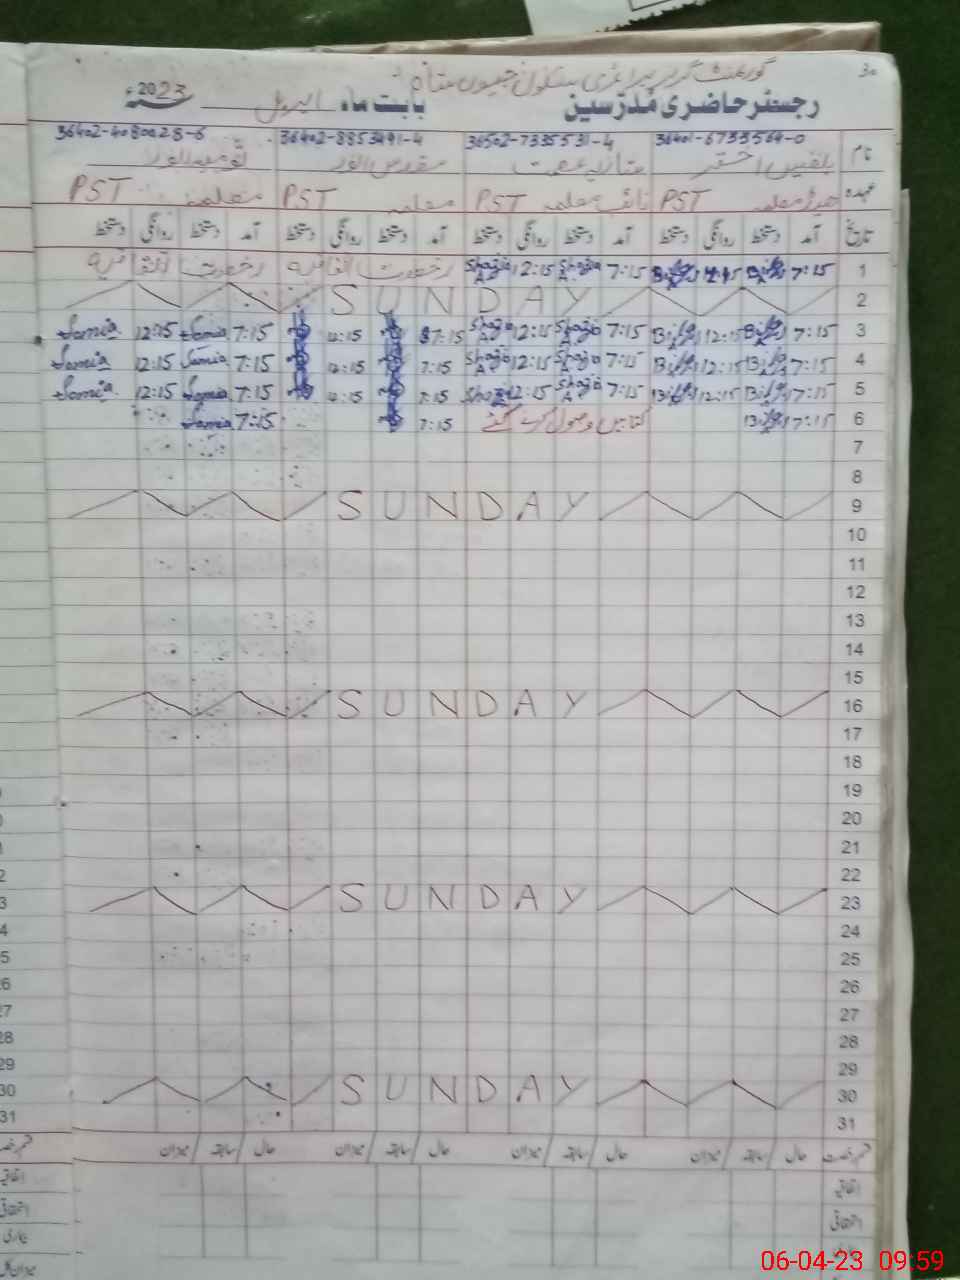 30
گورنمنٹ گرلز پرائمری سکول
رجسٹر حاضری مدرسین بابت ماہ اپریل سنہ 2023ء
36401-6733564-0 36502-7335531-4 36402-8853491-4 36402-4080028-6
نام بلقیس اختر
عہدہ ہیڈ معلمہ PST نائب معلمہ PST معلمہ PST معلمہ PST
تاریخ آمد دستخط روانگی دستخط آمد دستخط روانگی دستخط آمد دستخط روانگی دستخط آمد دستخط روانگی دستخط
1 7:15 Bilqis 12:15 Bilqis 7:15 Shazia A 12:15 Shazia A رخصت اتفاقیہ رخصت اتفاقیہ
2 SUNDAY
3 7:15 Bilqis 12:15 Bilqis 7:15 Shazia A 12:15 Shazia A 7:15 12:15 7:15 Samia 12:15 Samia
4 7:15 Bilqis 12:15 Bilqis 7:15 Shazia A 12:15 Shazia A 7:15 12:15 7:15 Samia 12:15 Samia
5 7:15 Bilqis 12:15 Bilqis 7:15 Shazia A 12:15 Shazia 7:15 12:15 7:15 Samia 12:15 Samia
6 7:15 Bilqis کتابیں وصول کرنے گئے 7:15 7:15 Samia
7
8
9 SUNDAY
10
11
12
13
14
15
16 SUNDAY
17
18
19
20
21
22
23 SUNDAY
24
25
26
27
28
29
30 SUNDAY
31
حال سابقہ میزان حال سابقہ میزان حال سابقہ میزان حال سابقہ میزان
اتفاقیہ
استحقاقی
06-04-23 09:59